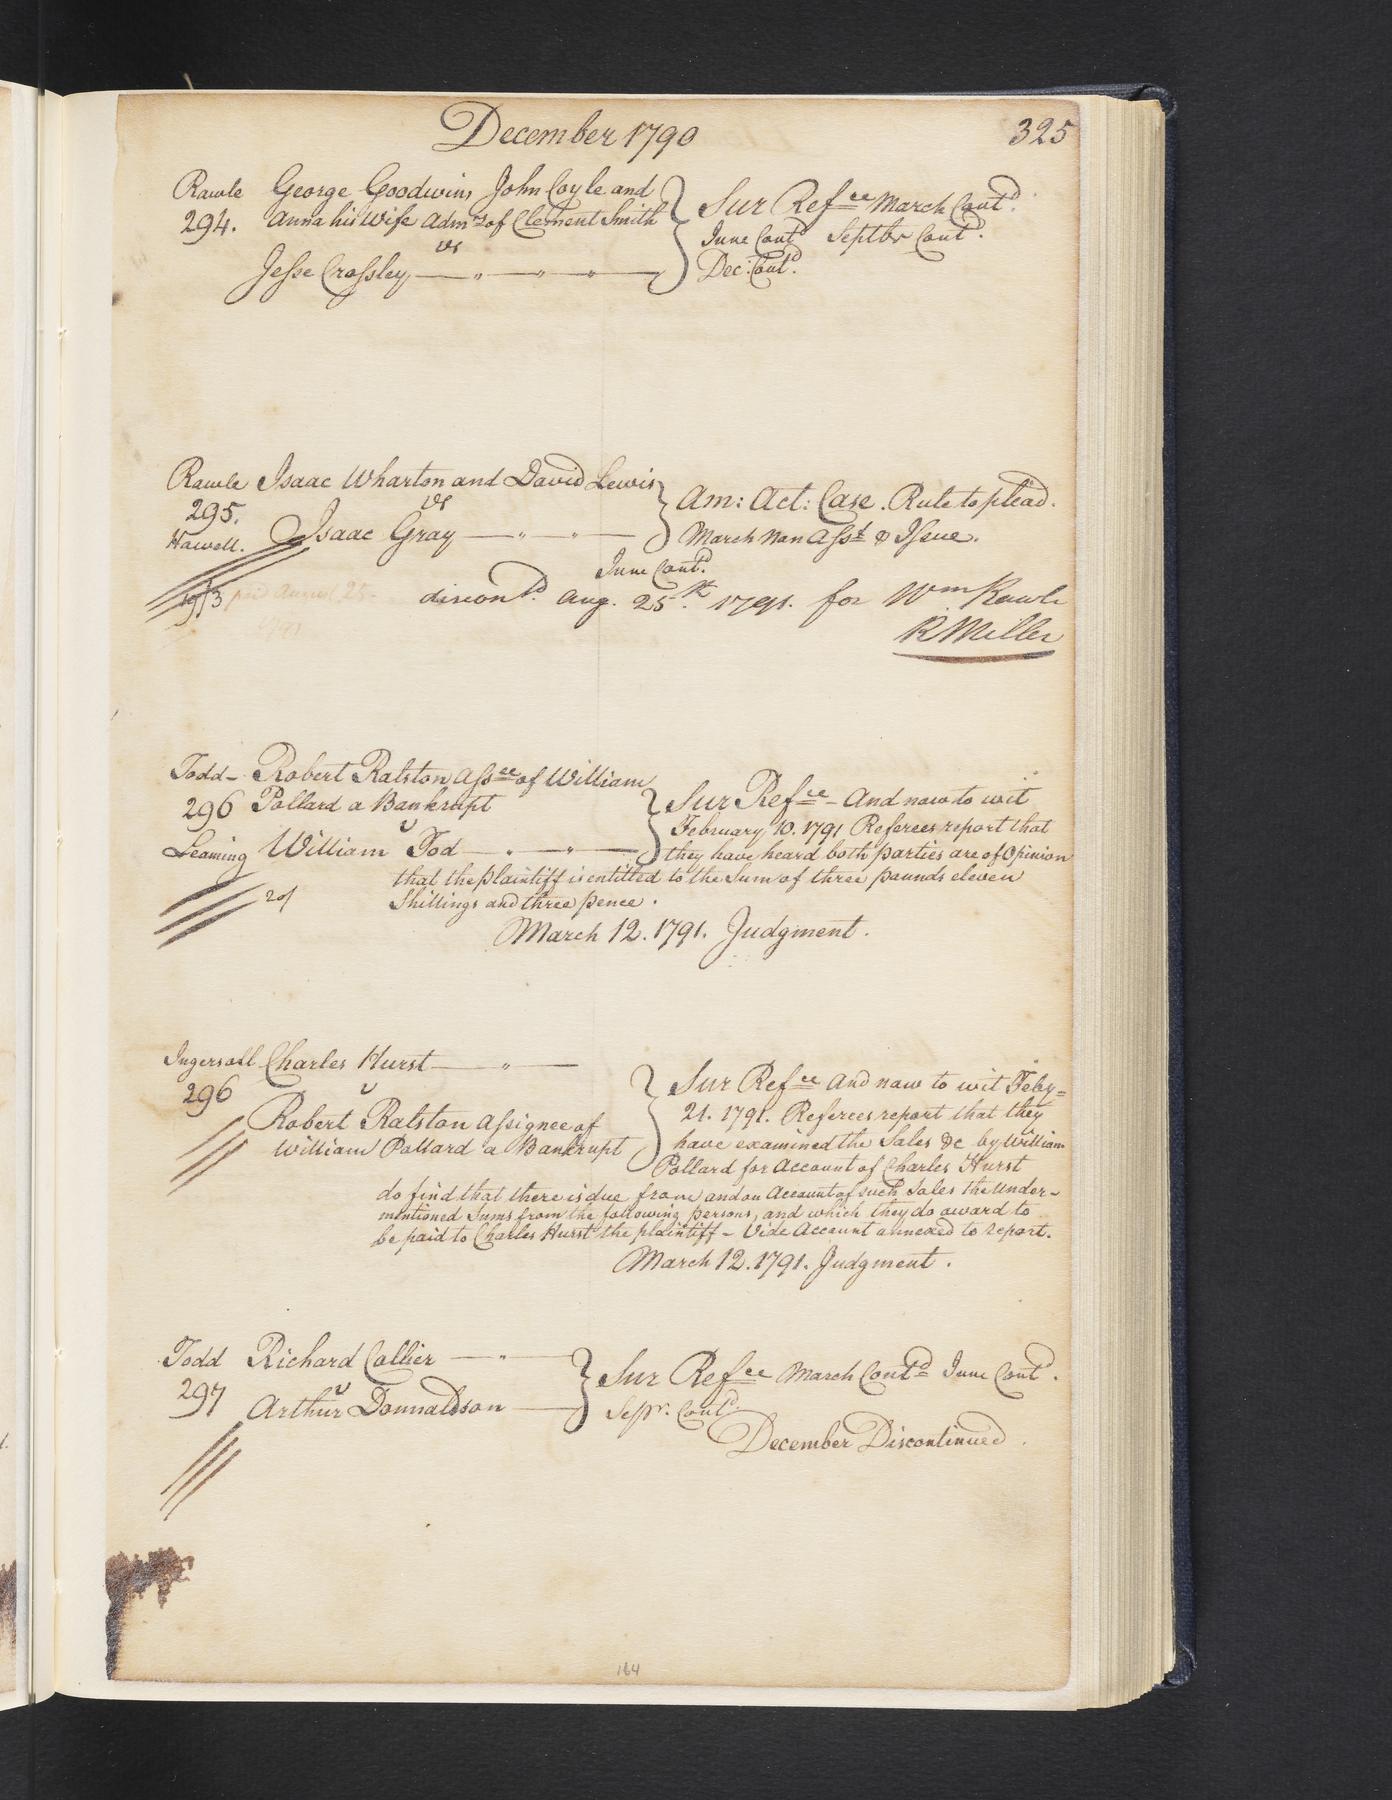 December 1790
325
Rawle George Goodwin, John Coyle and
294. Anna his Wife Admrs of Clement Smith
vs
Jesse Crossley
Sur Refce March Contd.
June Contd Septbr Contd.
Dec: Contd.
Rawle Isaac Wharton and David Lewis
295. vs
Howell. Isaac Gray
Am: Act: Case. Rule to plead.
March Non Asst & Issue.
June Contd.
discontd. Aug. 25th. 1791. for Wm Rawle
R Miller
19/3 paid August 25
1791
Todd - Robert Ralston Assee of William
296 Pollard a Bankrupt
v
Leaming William Tod
Sur Refce - And now to wit
February 10. 1791 Referees report that
they have heard both parties are of Opinion
that the plaintiff is entitled to the Sum of three pounds eleven
20/ Shillings and three pence.
March 12. 1791. Judgment.
Ingersoll Charles Hurst
296 v
Robert Ralston Assignee of
William Pollard a Bankrupt
Sur Refce And now to wit Feby=
21. 1791. Referees report that they
have examined the Sales &c by William
Pollard for Account of Charles Hurst
do find that there is due from and on Account of such Sales the Under-
mentioned Sums from the following persons, and which they do award to
be paid to Charles Hurst the plaintiff - Vide Account annexed to report.
March 12. 1791. Judgment.
Todd Richard Collier
297 v
Arthur Donnaldson
Sur Refce March Contd June Contd.
Sepr. Contd.
December Discontinued.
164